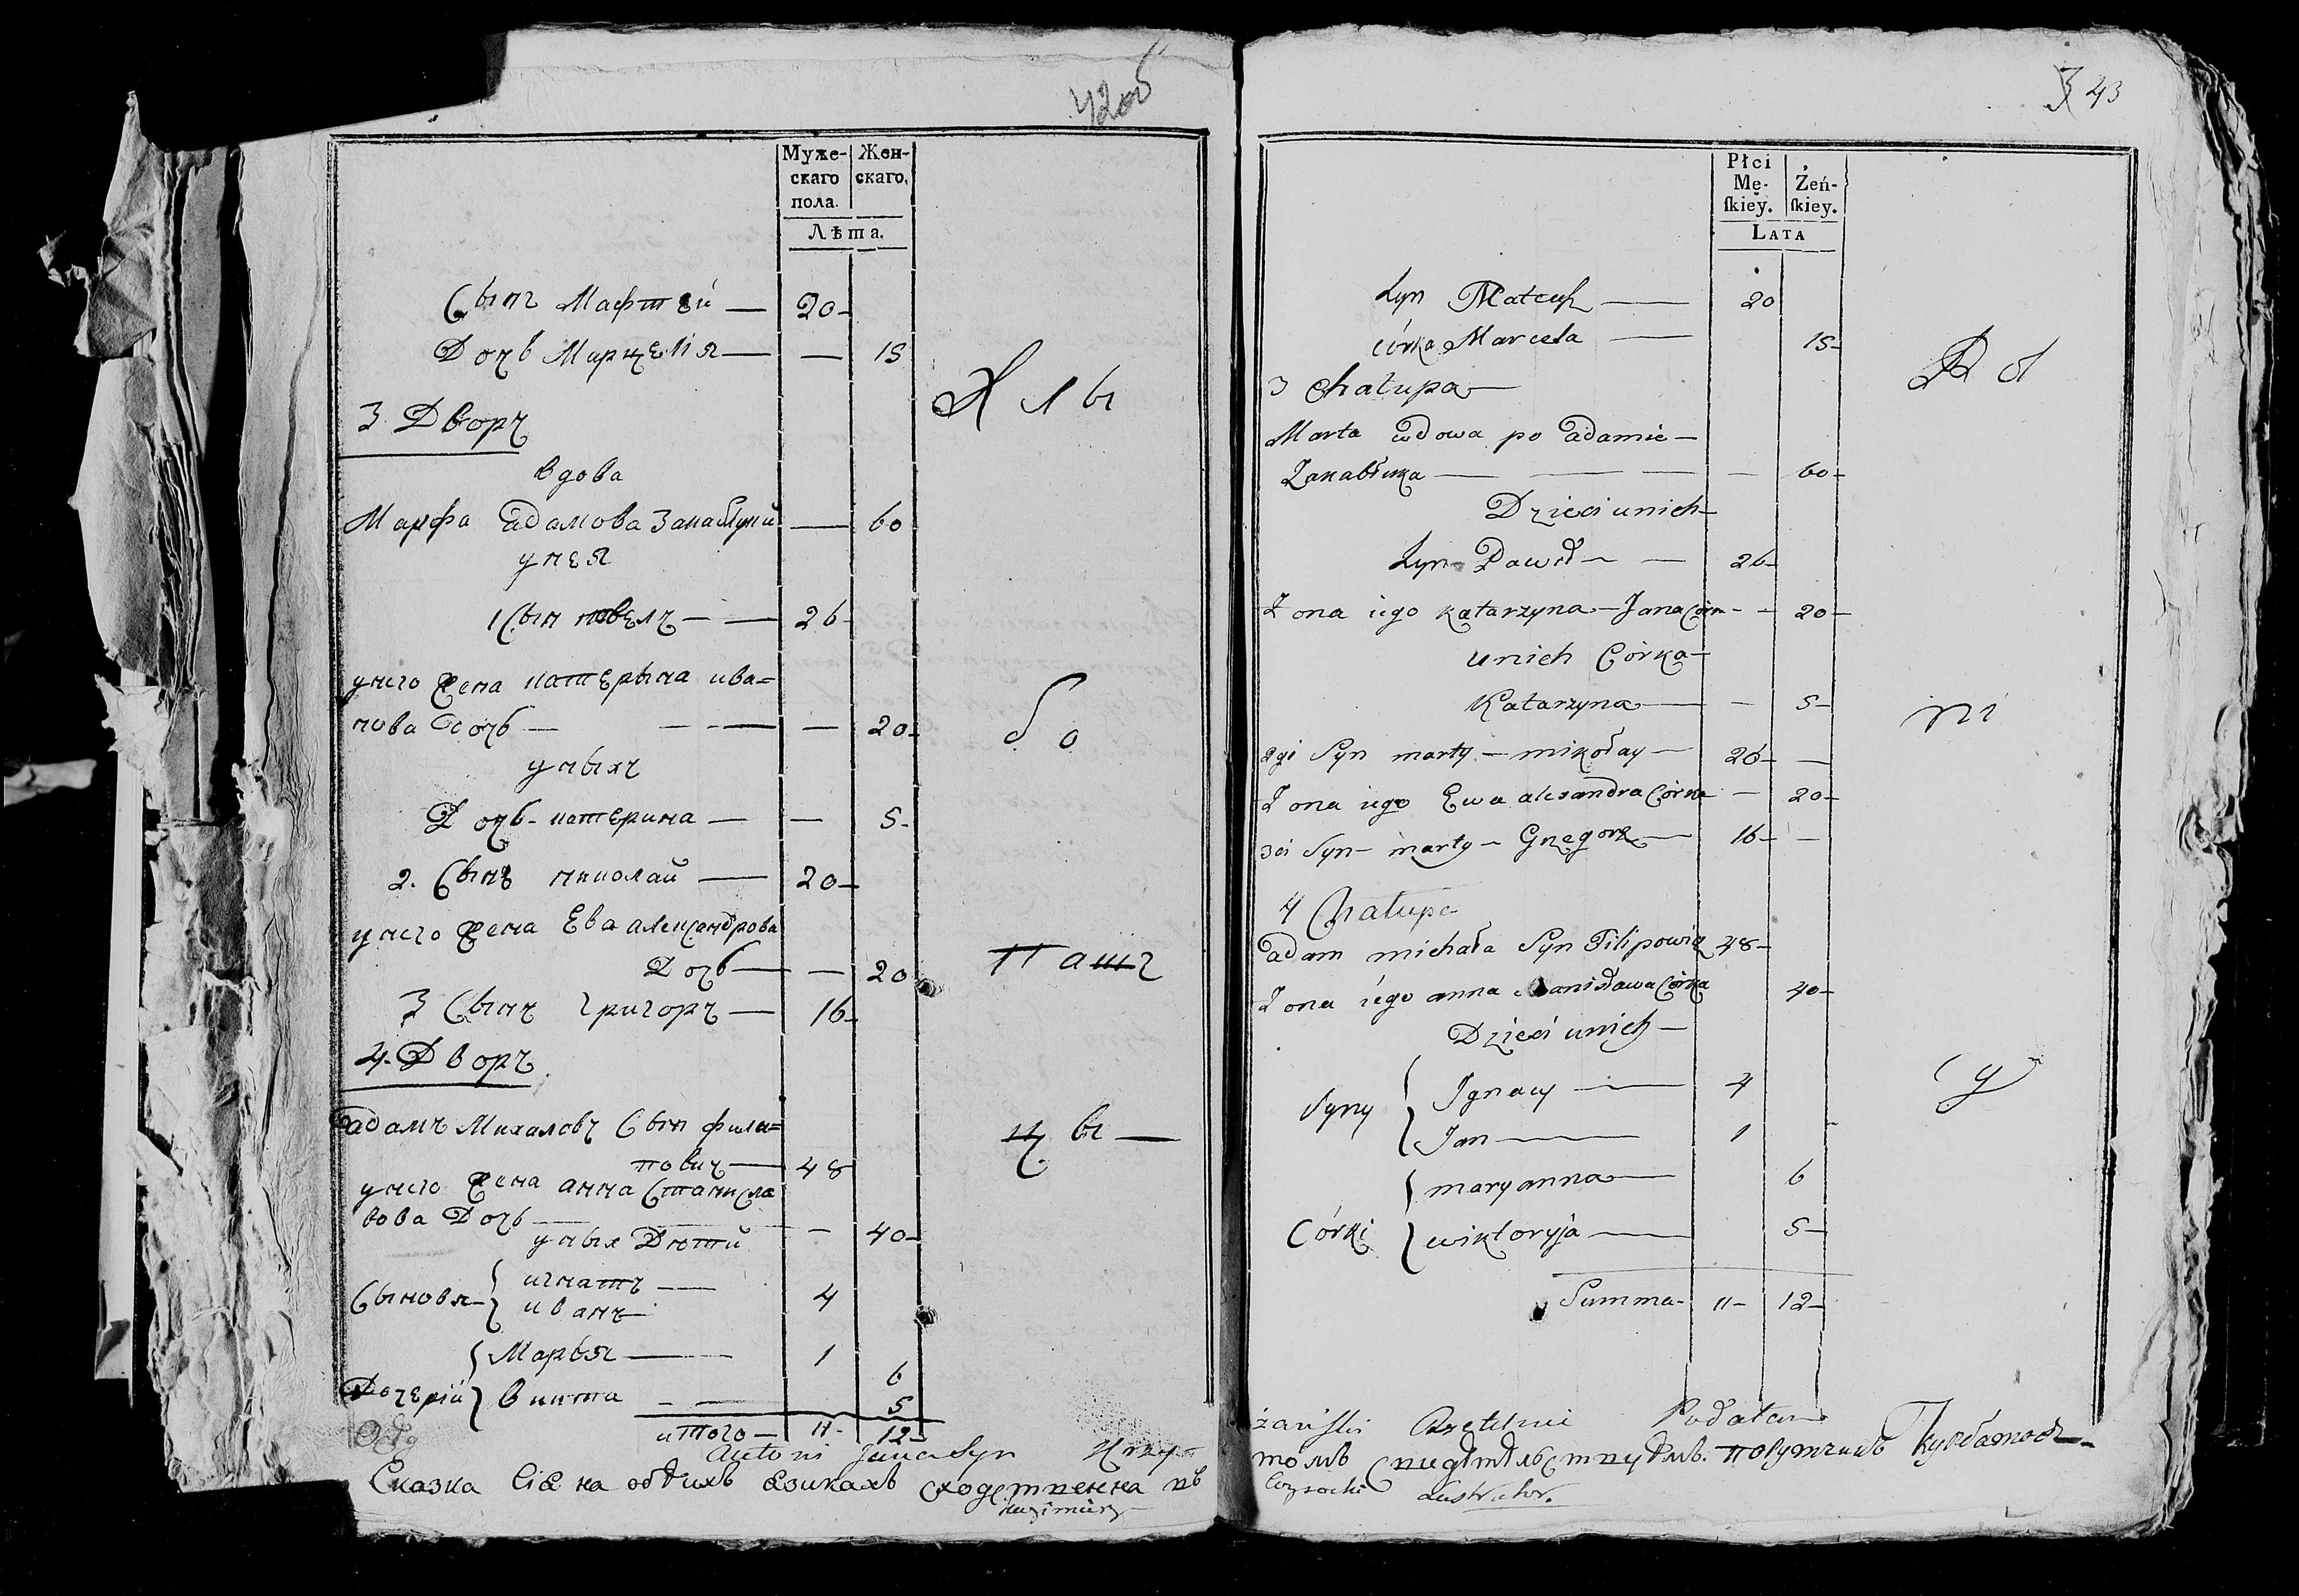 42об
Муже-
скаго
пола.
Жен-
скаго,
Лѣта.
Сынъ Мафтей — 20
Дочь Марцеля — — 15
3 Дворъ
вдова
Марфа Адамова — 60
унея
1 Сын павелъ — — 26
унего жена катерына ива=
нова Дочь — — — 20
уныхъ
Дочь катерина — — 5
2. Сынъ николай — 20
унего жена Ева александрова
Дочь — — 20
3 Сынъ григоръ — 16
4. Дворъ
адамъ Михаловъ Сын фили=
повичъ — 48
унего жена анна Станисла
вова Дочь — — 40
уных Дѣти
Сыновя { игнатъ — 4
иванъ —
{ Марья — 1
6
Дочерій } викта — — 5
итого — 11 — 12
Antoni Jana Syn
Сказка сія на обѣихъ языкахъ сходственна въ
Kazimierz
Хлы
бо
пашъ
цы —
43
Płci
Mę-
ſkiey.
Żeń-
ſkiey.
LATA
Syn Mateuſz — 20
córka Marcela — 15
3 Chałupa —
Marta wdowa po adamie —
Zanabluka — — — — 60
Dzieci unich —
Syn Paweł — — 26
Żona iego Katarzyna — Jana Córka — — 20
unich Córka —
Katarzyna — — 5
2gi Syn marty — mikołay — 20 —
Żona iego Ewa alexandra Córka — 20
3ci Syn — marty — Grzegorz — 16 —
4 Chałupa
adam michała Syn Filipowicz 48
Żona iego anna Stanisława Córka 40
Dzieci unich —
Syny { Ignacy — 4
Jan — 1
{ maryanna — 6
Córki } wiktoryja — 5
Summa — 11 — 12
Rol
ni
cy
Rzetelnie Podałem
томъ свидѣтельствуемъ. порутчикъ Курбатовъ
Lustrator.